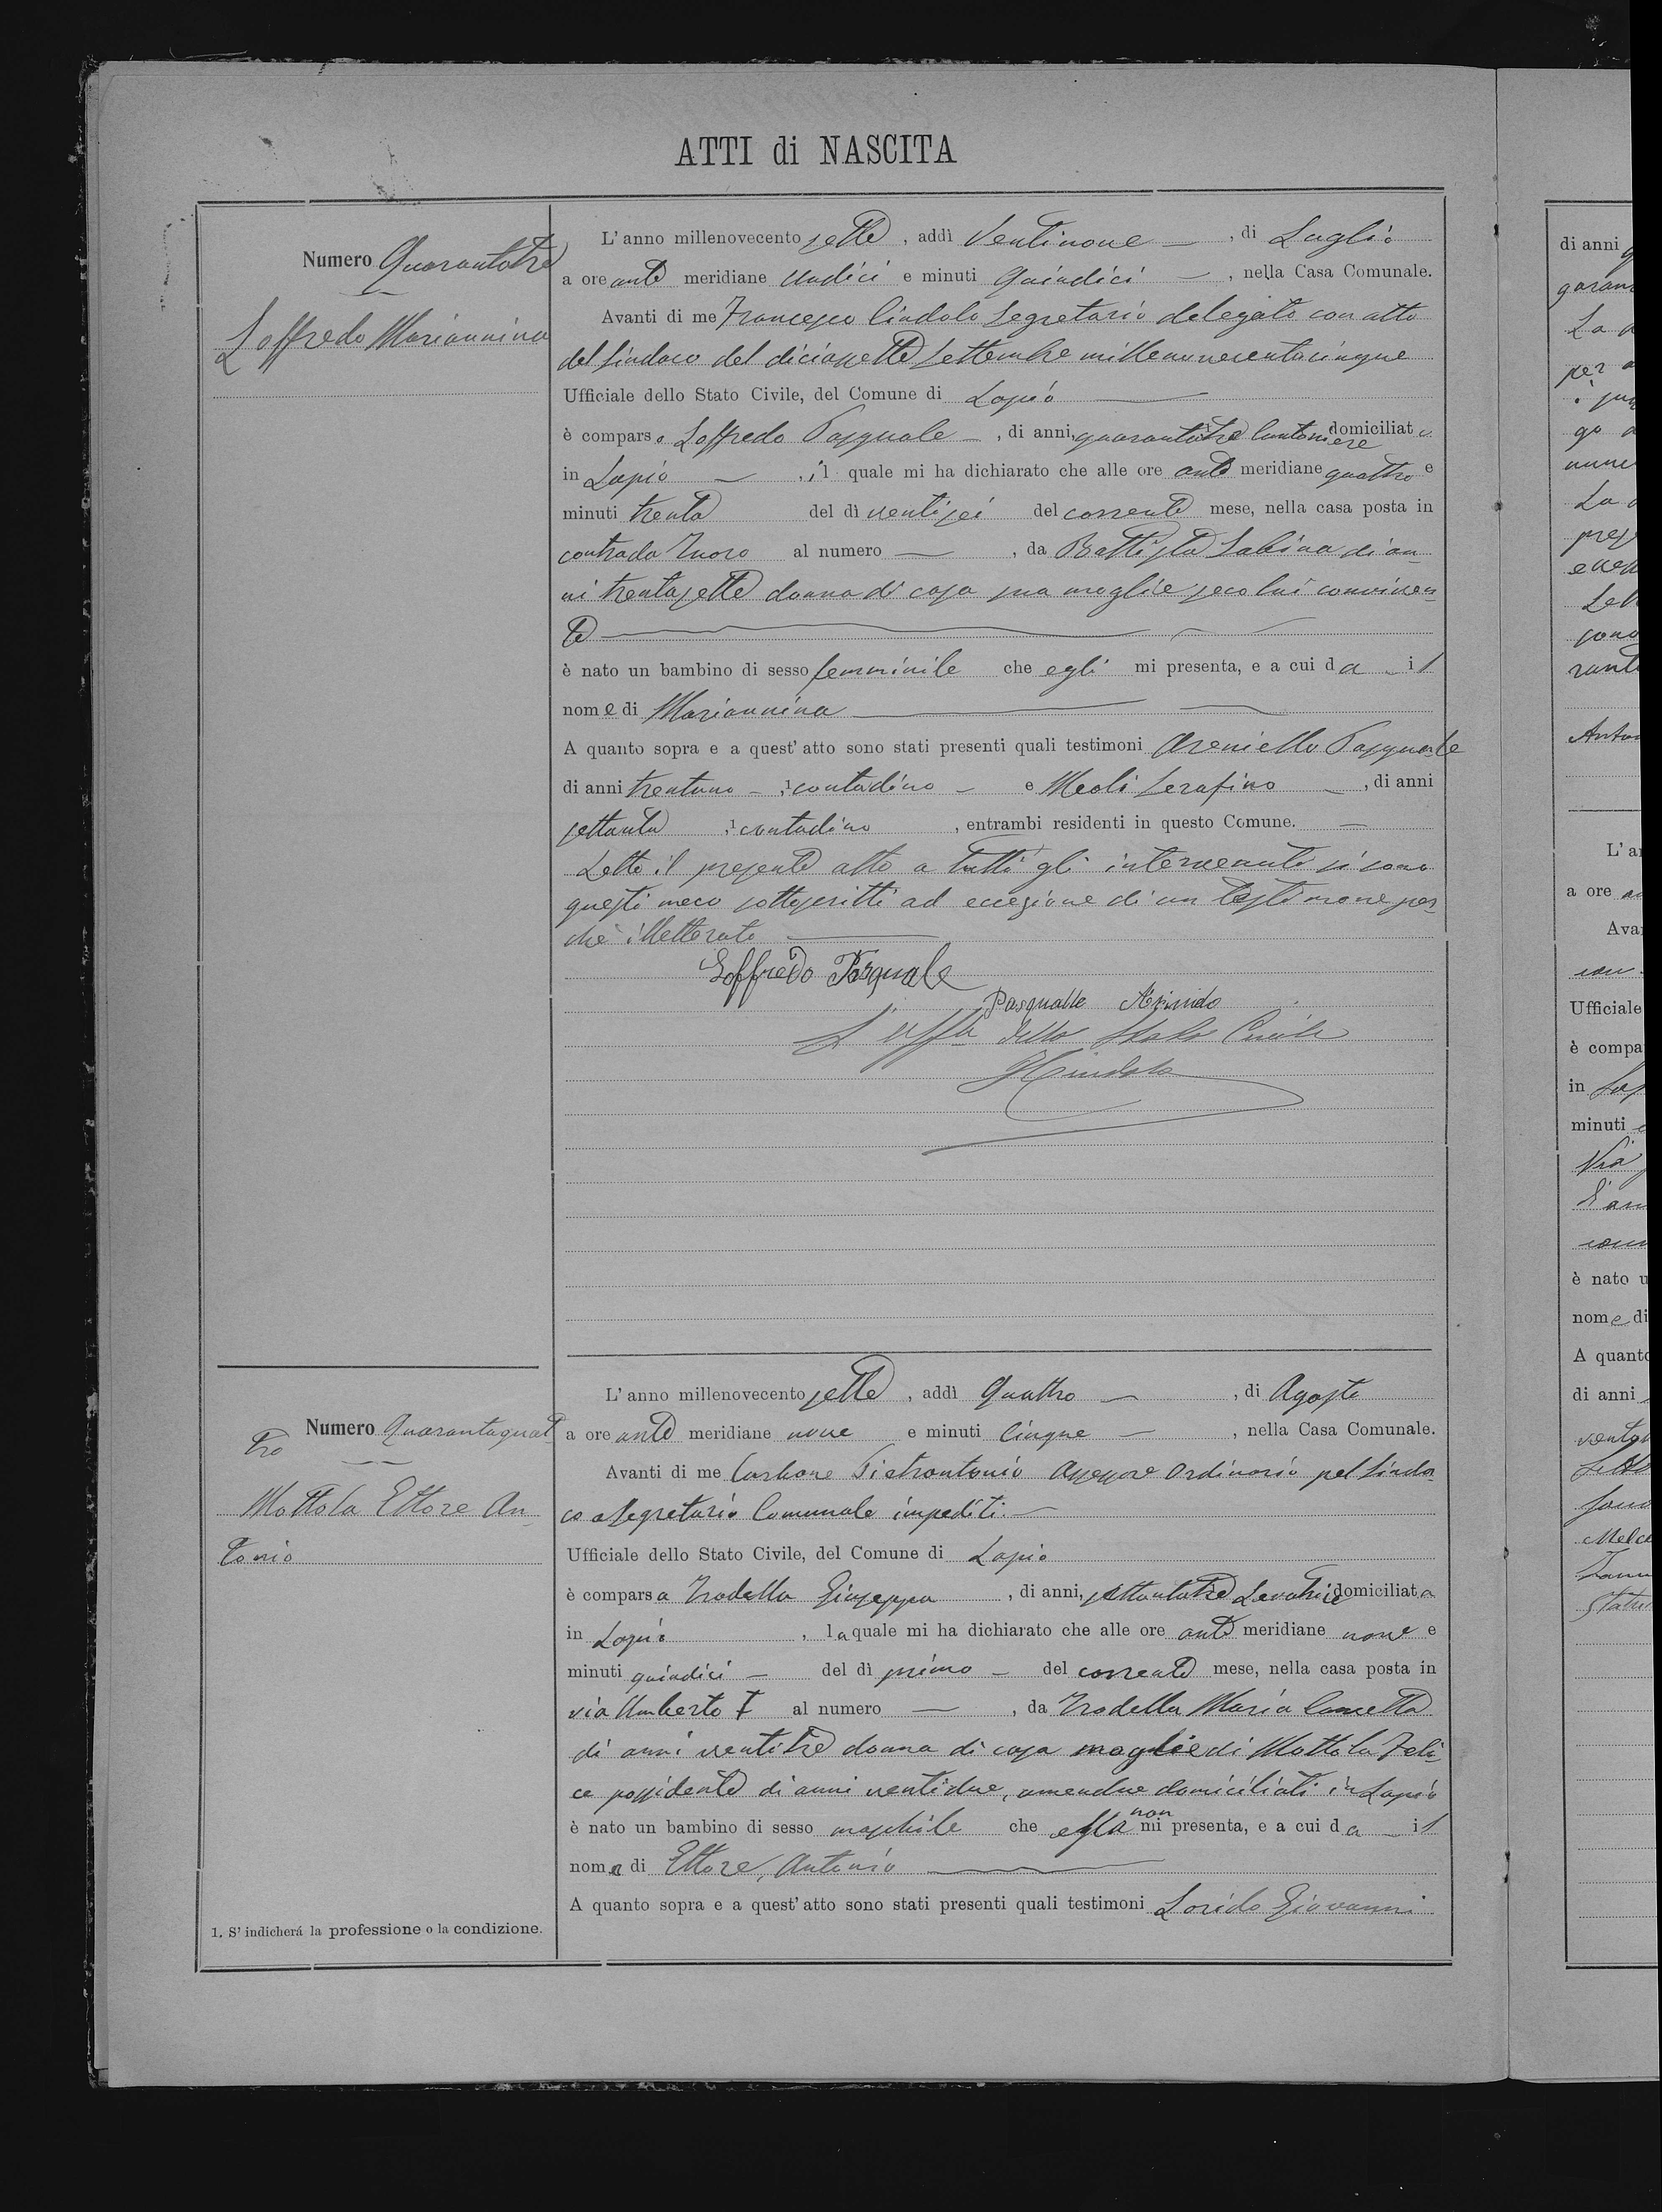 ATTI di NASCITA
Numero Quarantatre
Loffredo Mariannina
L'anno millenovecento sette, addì Ventinove —, di Luglio
a ore ante meridiane Undici e minuti Quindici —, nella Casa Comunale.
Avanti di me Francesco Cindolo Segretario delegato con atto
del Sindaco del diciassette Settembre millenovecentocinque
Ufficiale dello Stato Civile, del Comune di Lapio —
è comparso Loffredo Pasquale —, di anni, quarantatre Cantoniere domiciliato
in Lapio —, il quale mi ha dichiarato che alle ore ante meridiane quattro e
minuti trenta del dì ventisei del corrente mese, nella casa posta in
contrada al numero —, da Battista Sabina di an-
ni trentasette donna di casa sua moglie seco lui conviven-
te —
è nato un bambino di sesso femminile che egli mi presenta, e a cui da — il
nome di Mariannina —
A quanto sopra e a quest'atto sono stati presenti quali testimoni Areniello Pasquale
di anni trentuno —, 1 contadino — e Meoli Serafino —, di anni
settanta, 1 contadino, entrambi residenti in questo Comune. —
Letto il presente atto a tutti gli intervenuti si sono
questi meco sottoscritti ad eccezione di un testimone per-
chè illetterato —
Loffredo Pasquale
Pasqualle
L'uff.le dello Stato Civile
FCindolo
Numero Quarantaquat-
tro
Mottola Ettore An-
tonio
L'anno millenovecento sette, addì Quattro —, di Agosto
a ore ante meridiane nove e minuti Cinque —, nella Casa Comunale.
Avanti di me Carbone Pietrantonio Assessore Ordinario pel Sinda-
co e Segretario Comunale impediti. —
Ufficiale dello Stato Civile, del Comune di Lapio
è comparsa Trodella Giuseppa, di anni, settantatre Levatrice domiciliata
in Lapio, la quale mi ha dichiarato che alle ore ante meridiane nove e
minuti quindici — del dì primo — del corrente mese, nella casa posta in
via Umberto I al numero —, da Trodella Maria Concetta
di anni ventitre donna di casa moglie di Mottola Feli-
ce possidente di anni ventidue, amendue domiciliati in Lapio
è nato un bambino di sesso maschile che essa non mi presenta, e a cui da — il
nome di Ettore, Antonio —
A quanto sopra e a quest'atto sono stati presenti quali testimoni Lorido Giovanni
1. S'indicherá la professione o la condizione.